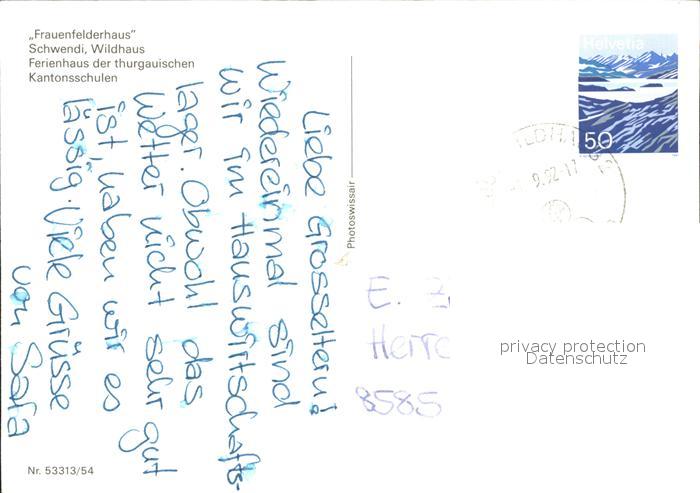 „Frauenfelderhaus"
Schwendi, Wildhaus
Ferienhaus der thurgauischen
Kantonsschulen
Liebe Grosseltern!
Wiedereinmal sind
wir im Hauswirtschafts-
lager. Obwohl das
Wetter nicht sehr gut
ist, haben wir es
lässig. Viele Grüsse
von
Photoswissair
Helvetia
50
9.92-17
E. Z
Herr
8585
privacy protection
Datenschutz
Nr. 53313/54